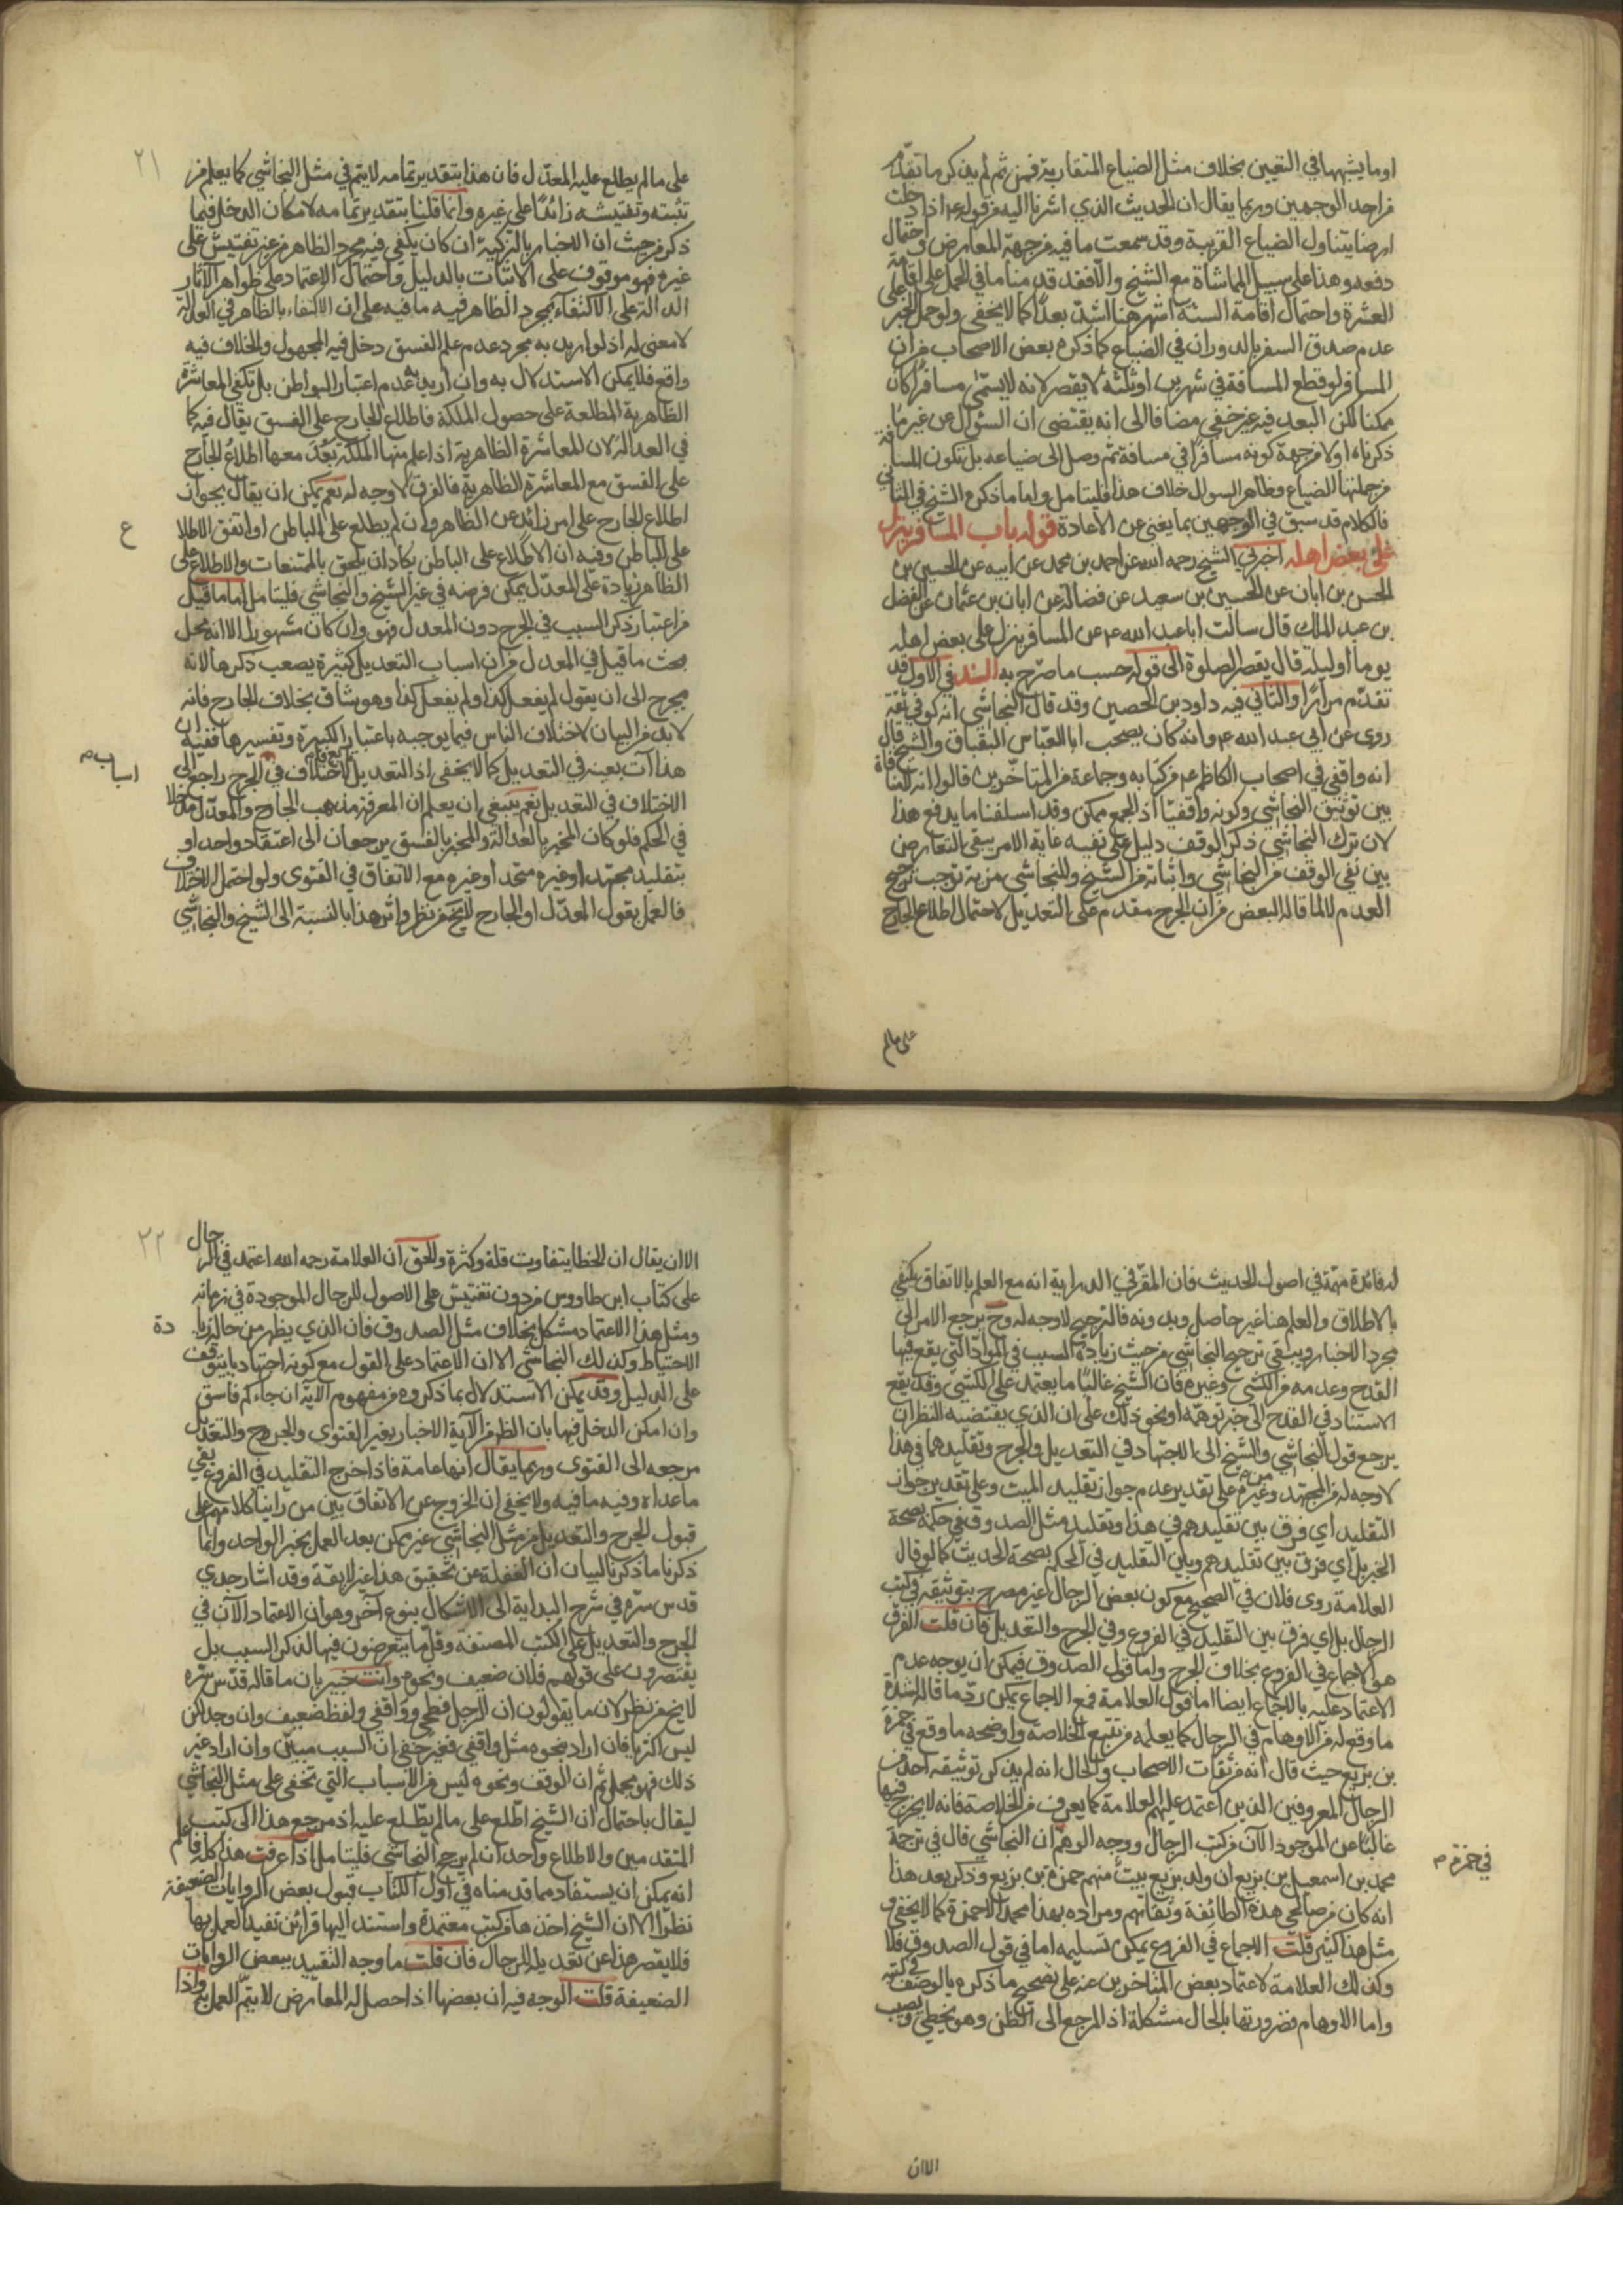 او ما يشبهها في التعيين بخلاف مثل الضياع المتقاربة فمن ثم لم يذكر ما تقدّم
من احد الوجهين وربما يقال ان الحديث الذي اشرنا اليه من قوله ع اذا دخلت
ارضنا يتناول الضياع القريبة وقد سمعت ما فيه من جهة المعارض و احتمال
دفعه وهذا على سبيل المماشاة مع الشيخ والّا فقد قدمنا ما في الحمل على اقامة
العشرة واحتمال اقامة الستة اشهر هنا اشد بعدًا كما لا يخفى ولو حمل الخبر على
عدم صدق السفر بالدوران في الضياع كما ذكره بعض الاصحاب من ان
المسافر لو قطع المسافة في شهرين او ثلثة لا يقصر لانه لا يسمّى مسافرًا كان
ممكنا لكن البعد فيه غير خفي مضافا الى انه يقتضي ان السؤال عن غير ما
ذكرناه اولا من جهة كونه مسافرًا في مسافة ثم وصل الى ضياعه بل تكون المسافة
من جملتها الضياع وظاهر السوال خلاف هذا فليتامل واما ما ذكره الشيخ في الثاني
فالكلام قد سبق في الوجهين بما يغني عن الاعادة قوله باب المسافر ينزل
على بعض اهله اخبرني الشيخ رحمه الله عن احمد بن محمد عن ابيه عن الحسين بن
الحسن بن ابان عن الحسين بن سعيد عن فضالة عن ابان بن عثمان عن الفضل
بن عبد الملك قال سالت ابا عبد الله ع عن المسافر ينزل على بعض اهله
يوما او ليلة قال يقصر الصلوة الى قوله حسب ما صرّح به السند في الاول قد
تقدّم مرارًا والثاني فيه داود بن الحصين وقد قال النجاشي انه كوفي ثقة
روى عن ابي عبد الله ع وانه كان يصحب ابا العبّاس البقباق والشيخ قال
انه واقفي في اصحاب الكاظم ع من كتابه وجماعة من المتاخّرين قالوا انه لا منافاة
بين توثيق النجاشي وكونه واقفيّا اذ الجمع ممكن وقد اسلفنا ما يدفع هذا
لان ترك النجاشي ذكر الوقف دليل على نفيه غاية الامر يبقى التعارض
بين نفي الوقف من النجاشي واثباته من الشيخ وللنجاشي مزية توجب ترجيح
العدم لا لما قاله البعض من ان الجرح مقدم على التعديل لاحتمال اطلاع الجارح
على ما لم
٢١
على ما لم يطلع عليه المعدّل فان هذا بتقدير تمامه لا يتم في مثل النجاشي كما يعلم من
تثبته وتفتيشه زائدًا على غيره وانما قلنا بتقدير تمامه لامكان الدخل فيما
ذكر من حيث ان الاخبار بالتزكية ان كان يكفي فيه مجرد الظاهر من غير تفتيش على
غيره فهو موقوف على الاثبات بالدليل واحتمال الاعتماد على ظواهر الآثار
الدالة على الاكتفاء بمجرد الظاهر فيه ما فيه على ان الاكتفاء بالظاهر في العدالة
لا معنى له اذ لو اريد به مجرد عدم علم الفسق دخل فيه المجهول والخلاف فيه
واقع فلا يمكن الاستدلال به وان اريد به عدم اعتبار البواطن بل تكفي المعاشرة
الظاهرية المطلعة على حصول الملكة فاطلاع الجارح على الفسق يقال فيه كما
في العدالة لان المعاشرة الظاهرية اذا علم منها الملكة بَعُدَ معها اطلاعُ الجارح
على الفسق مع المعاشرة الظاهرية فالفرق لا وجه له نعم يمكن ان يقال بجواز
اطلاع الجارح على امر زائد عن الظاهر وان لم يطلع على الباطن او اتفق الاطلا
ع
على الباطن وفيه ان الاطلاع على الباطن يكاد ان يلحق بالممتنعات والاطلاع على
الظاهر زيادة على المعدّل يمكن فرضه في غير الشيخ والنجاشي فليتامل اما ما قيل
من اعتبار ذكر السبب في الجرح دون المعدل فهو وان كان مشهورا الا انه محل
بحث ما قيل في المعدل من ان اسباب التعديل كثيرة يصعب ذكرها لانه
يحوج الى ان يقول لم يفعل كذا ولم يفعل كذا وهو شاق بخلاف الجارح فانه
لا بد من البيان لاختلاف الناس فيما يوجبه باعتبار الكبيرة وتفسيرها ففيه ان
هذا آت بعينه في التعديل كما لا يخفى اذ التعديل الاختلاف في الجرح راجع الى
اسباب م
الاختلاف في التعديل نعم ينبغي ان يعلم ان المعرفة بمذهب الجارح والمعدّل مدخلا
في الحكم فلو كان المخبر بالعدالة والمخبر بالفسق يرجعان الى اعتقاد واحد او
بتقليد مجتهد او غيره متحد او غيره مع الاتفاق في الفتوى ولو احتمل الاختلاف
فالعمل بقول المعدّل او الجارح لا يخ من نظر واثر هذا بالنسبة الى الشيخ والنجاشي
له فائدة مهمّة في اصول الحديث فان المقرّر في الدراية انه مع العلم بالاتفاق يكتفي
بالاطلاق والعلم هنا غير حاصل وبدونه فالترجيح لا وجه له وح يرجع الامر الى
مجرد الاخبار ويبقى ترجيح النجاشي من حيث زيادة السبب في المواد التي يقع فيها
القدح وعدمه من الكشي وغيره فان الشيخ غالبًا ما يعتمد على الكشي وقد يقع
الاستناد في القدح الى خبر توهمّه او نحو ذلك على ان الذي يقتضيه النظر ان
يرجع قول النجاشي والشيخ الى الاجتهاد في التعديل والجرح وتقليدهما في هذا
لا وجه له من المجتهد وغيره على تقدير عدم جواز تقليد الميت وعلى تقدير جواز
التقليد اي فرق بين تقليدهم في هذا وتقليد مثل الصدوق في حكمه بصحة
الخبر بل اي فرق بين تقليدهم وبين التقليد في الحكم بصحة الحديث كما لو قال
العلامة روى فلان في الصحيح مع كون بعض الرجال غير مصرح بتوثيقه في كتب
الرجال بل اي فرق بين التقليد في الفروع وفي الجرح والتعديل فان قلت الفرق
هو الاجماع في الفروع بخلاف الجرح واما قول الصدوق فيمكن ان يوجه عدم
الاعتماد عليه بالاجماع ايضا اما قول العلامة فمع الاجماع يمكن ردّ ما قاله لشدة
ما وقع له من الاوهام في الرجال كما يعلمه من تتبع الخلاصة واوضحه ما وقع في حمزة
بن بزيع حيث قال انه من ثقات الاصحاب والحال انه لم يذكر توثيقه احد من
الرجال المعروفين الذين اعتمد عليهم العلامة كما يعرف من الخلاصة فانه لا يخرج فيها
غالبًا عن الموجود الآن من كتب الرجال ووجه الوهم ان النجاشي قال في ترجمة
في حمزة م
محمد بن اسمعيل بن بزيع ان ولد بزيع بيت منهم حمزة بن بزيع وذكر بعد هذا
انه كان من صالحي هذه الطائفة وثقاتهم ومراده بهذا محمد لا حمزة كما لا يخفى و
مثل هذا كثير قلت الاجماع في الفروع يمكن تسليمه اما في قول الصدوق فلا
وكذلك العلامة لاعتماد بعض المتاخرين عنه على تصحيح ما ذكره بالوصف في كتبه
واما الاوهام فضرورتها بالحال مشكلة اذ المرجع الى الظن وهو يخطي ويصيب
الا ان
٢٢
الا ان يقال ان الخطا يتفاوت قلة وكثرة والحق ان العلامة رحمه الله اعتمد في الرجال
على كتاب ابن طاووس من دون تفتيش على الاصول للرجال الموجودة في زمانه
ومثل هذا الاعتماد مشكل بخلاف مثل الصدوق فان الذي يظهر من حاله زيا
دة
الاحتياط وكذلك النجاشي الا ان الاعتماد على القول مع كونه اجتهاديا يتوقف
على الدليل وقد يمكن الاستدلال بما ذكروه من مفهوم الآية ان جاءكم فاسق
وان امكن الدخل فيها بان الظ من الآية الاخبار بغير الفتوى والجرح والتعديل
مرجعه الى الفتوى وربما يقال انها عامة فاذا خرج التقليد في الفروع بقي
ما عداه وفيه ما فيه ولا يخفى ان الخروج عن الاتفاق بين من راينا كلامهم على
قبول الجرح والتعديل من مثل النجاشي غير ممكن بعد العمل بخبر الواحد وانما
ذكرنا ما ذكرنا لبيان ان الغفلة عن تحقيق هذا غير لايقة وقد اشار جدي
قدس سرّه في شرح البداية الى الاشكال بنوع آخر وهو ان الاعتماد الآن في
الجرح والتعديل على الكتب المصنفة وقل ما يتعرضون فيها لذكر السبب بل
يقتصرون على قولهم فلان ضعيف ونحوه وانت خبير بان ما قاله قدّس سره
لا يخ من نظر لان ما يقولون ان الرجل فطحي وواقفي ولفظ ضعيف وان وجد لكن
ليس اكثريا فان اراد بنحوه مثل واقفي فغير خفي ان السبب مبيّن وان اراد غير
ذلك فهو مجمل ثم ان الوقف ونحوه ليس من الاسباب التي تخفى على مثل النجاشي
ليقال باحتمال ان الشيخ اطّلع على ما لم يطّلع عليه اذ مرجع هذا الى كتب
المتقدمين والاطلاع واحد ان لم يرجح النجاشي فليتامل اذا عرفت هذا كله فاعلم
انه يمكن ان يستفاد مما قدمناه في اول الكتاب قبول بعض الروايات الضعيفة
نظرًا الا ان الشيخ اخذها من كتب معتمدة واستند اليها قرائن تفيد العمل بها
فلا يقصر هذا عن تعديله للرجال فان قلت ما وجه التقييد ببعض الروايات
الضعيفة قلت الوجه فيه ان بعضها اذا حصل له المعارض لا يتم العمل به واذا